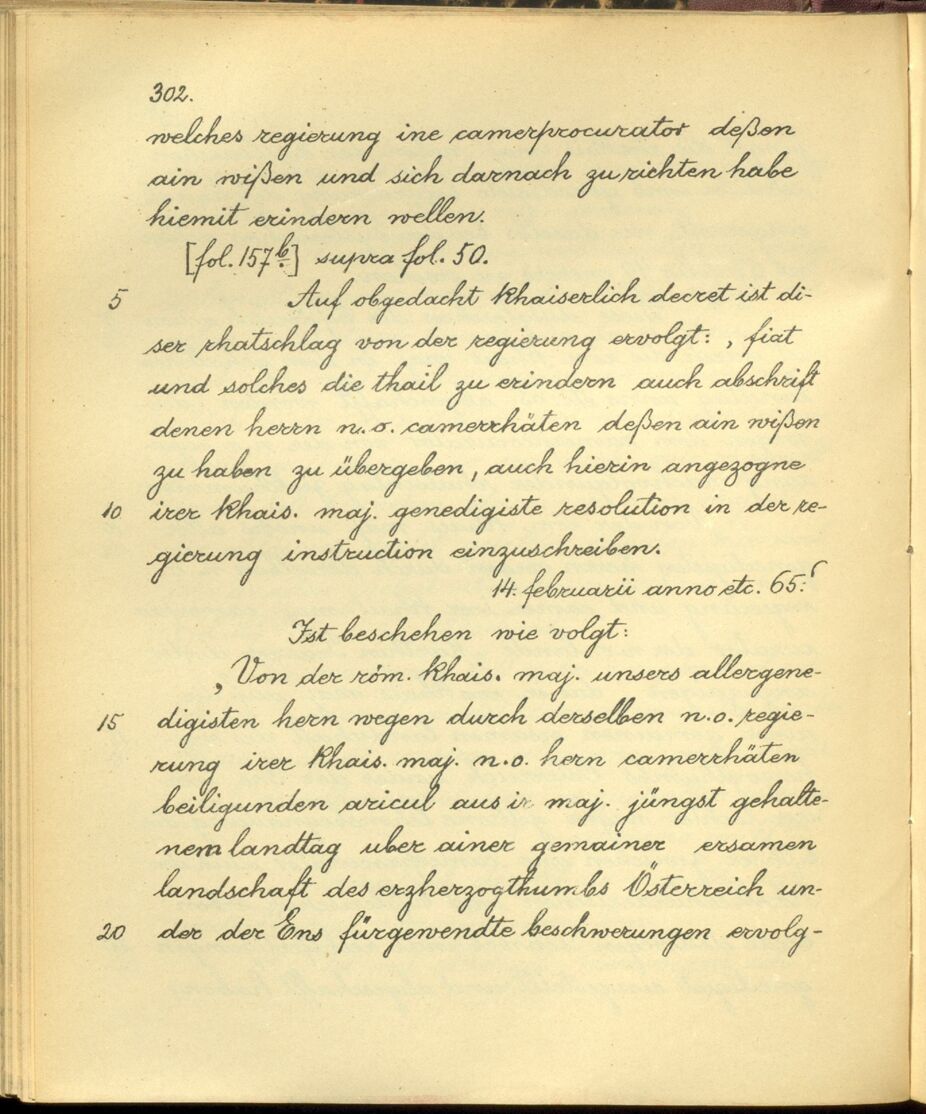 302.
welches regierung ine camerprocurator deßen
ain wißen und sich darnach zu richten habe
hiemit erindern wellen.
[fol. 157 b.] supra fol. 50.
5 Auf obgedacht khaiserlich decret ist di-
ser rhatschlag von der regierung ervolgt: , fiat
und solches die thail zu erindern auch abschrift
denen herrn n. o. camerrhäten deßen ain wißen
zu haben zu übergeben, auch hierin angezogne
10 irer khais. maj. genedigiste resolution in der re-
gierung instruction einzuschreiben.
14. februarii anno etc. 65.‘
Ist beschehen wie volgt:
‚Von der röm. khais. maj. unsers allergene-
15 digisten hern wegen durch derselben n. o. regie-
rung irer khais. maj. n. o. hern camerrhäten
beiligunden aricul aus ir maj. jüngst gehalte-
nem landtag uber ainer gemainer ersamen
landschaft des erzherzogthumbs Österreich un-
20 der der Ens fürgewendte beschwerungen ervolg-